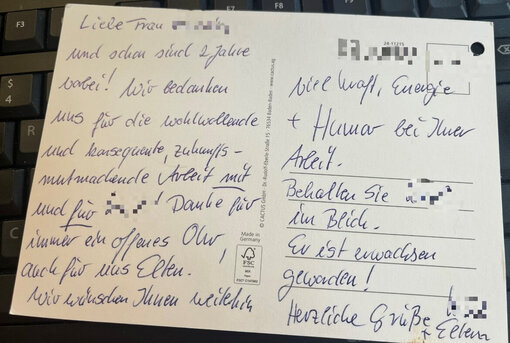 Liebe Frau
und schon sind 2 Jahre
vorbei! Wir bedanken
uns für die wohlwollende
und konsequente, zukunfts-
mutmachende Arbeit mit
und für ! Danke für
immer ein offenes Ohr,
auch für uns Eltern.
Wir wünschen Ihnen weiterhin
viel Kraft, Energie
+ Humor bei Ihrer
Arbeit.
Behalten Sie
im Blick.
Er ist erwachsen
geworden!
Herzliche Grüße
+ Eltern
© CACTUS GmbH
76534 Baden-Baden
www.cactus.ag
Made in
Germany
FSC
MIX
F3
$
4